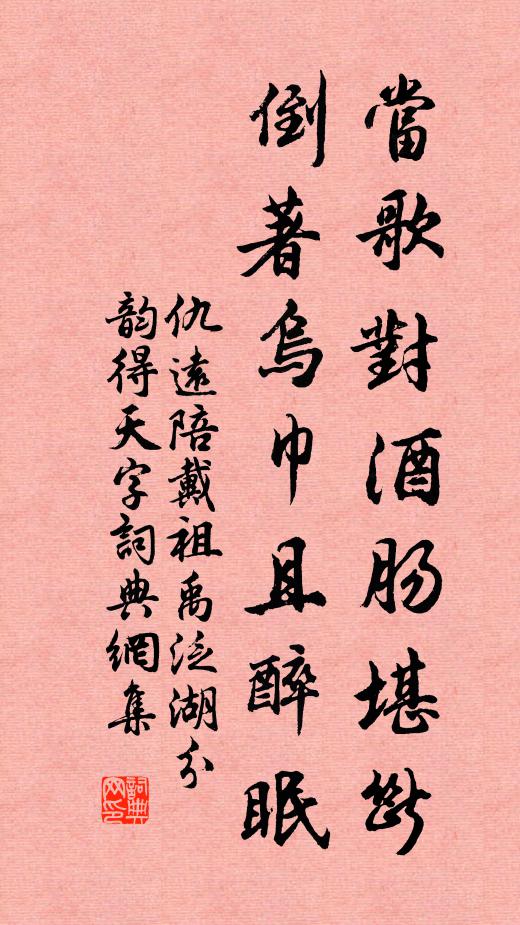 當歌對酒肠堪斷
倒著烏巾且醉眠
仇遠陪戴祖禹泛湖分
韵得天字詞典網集
詞典網印